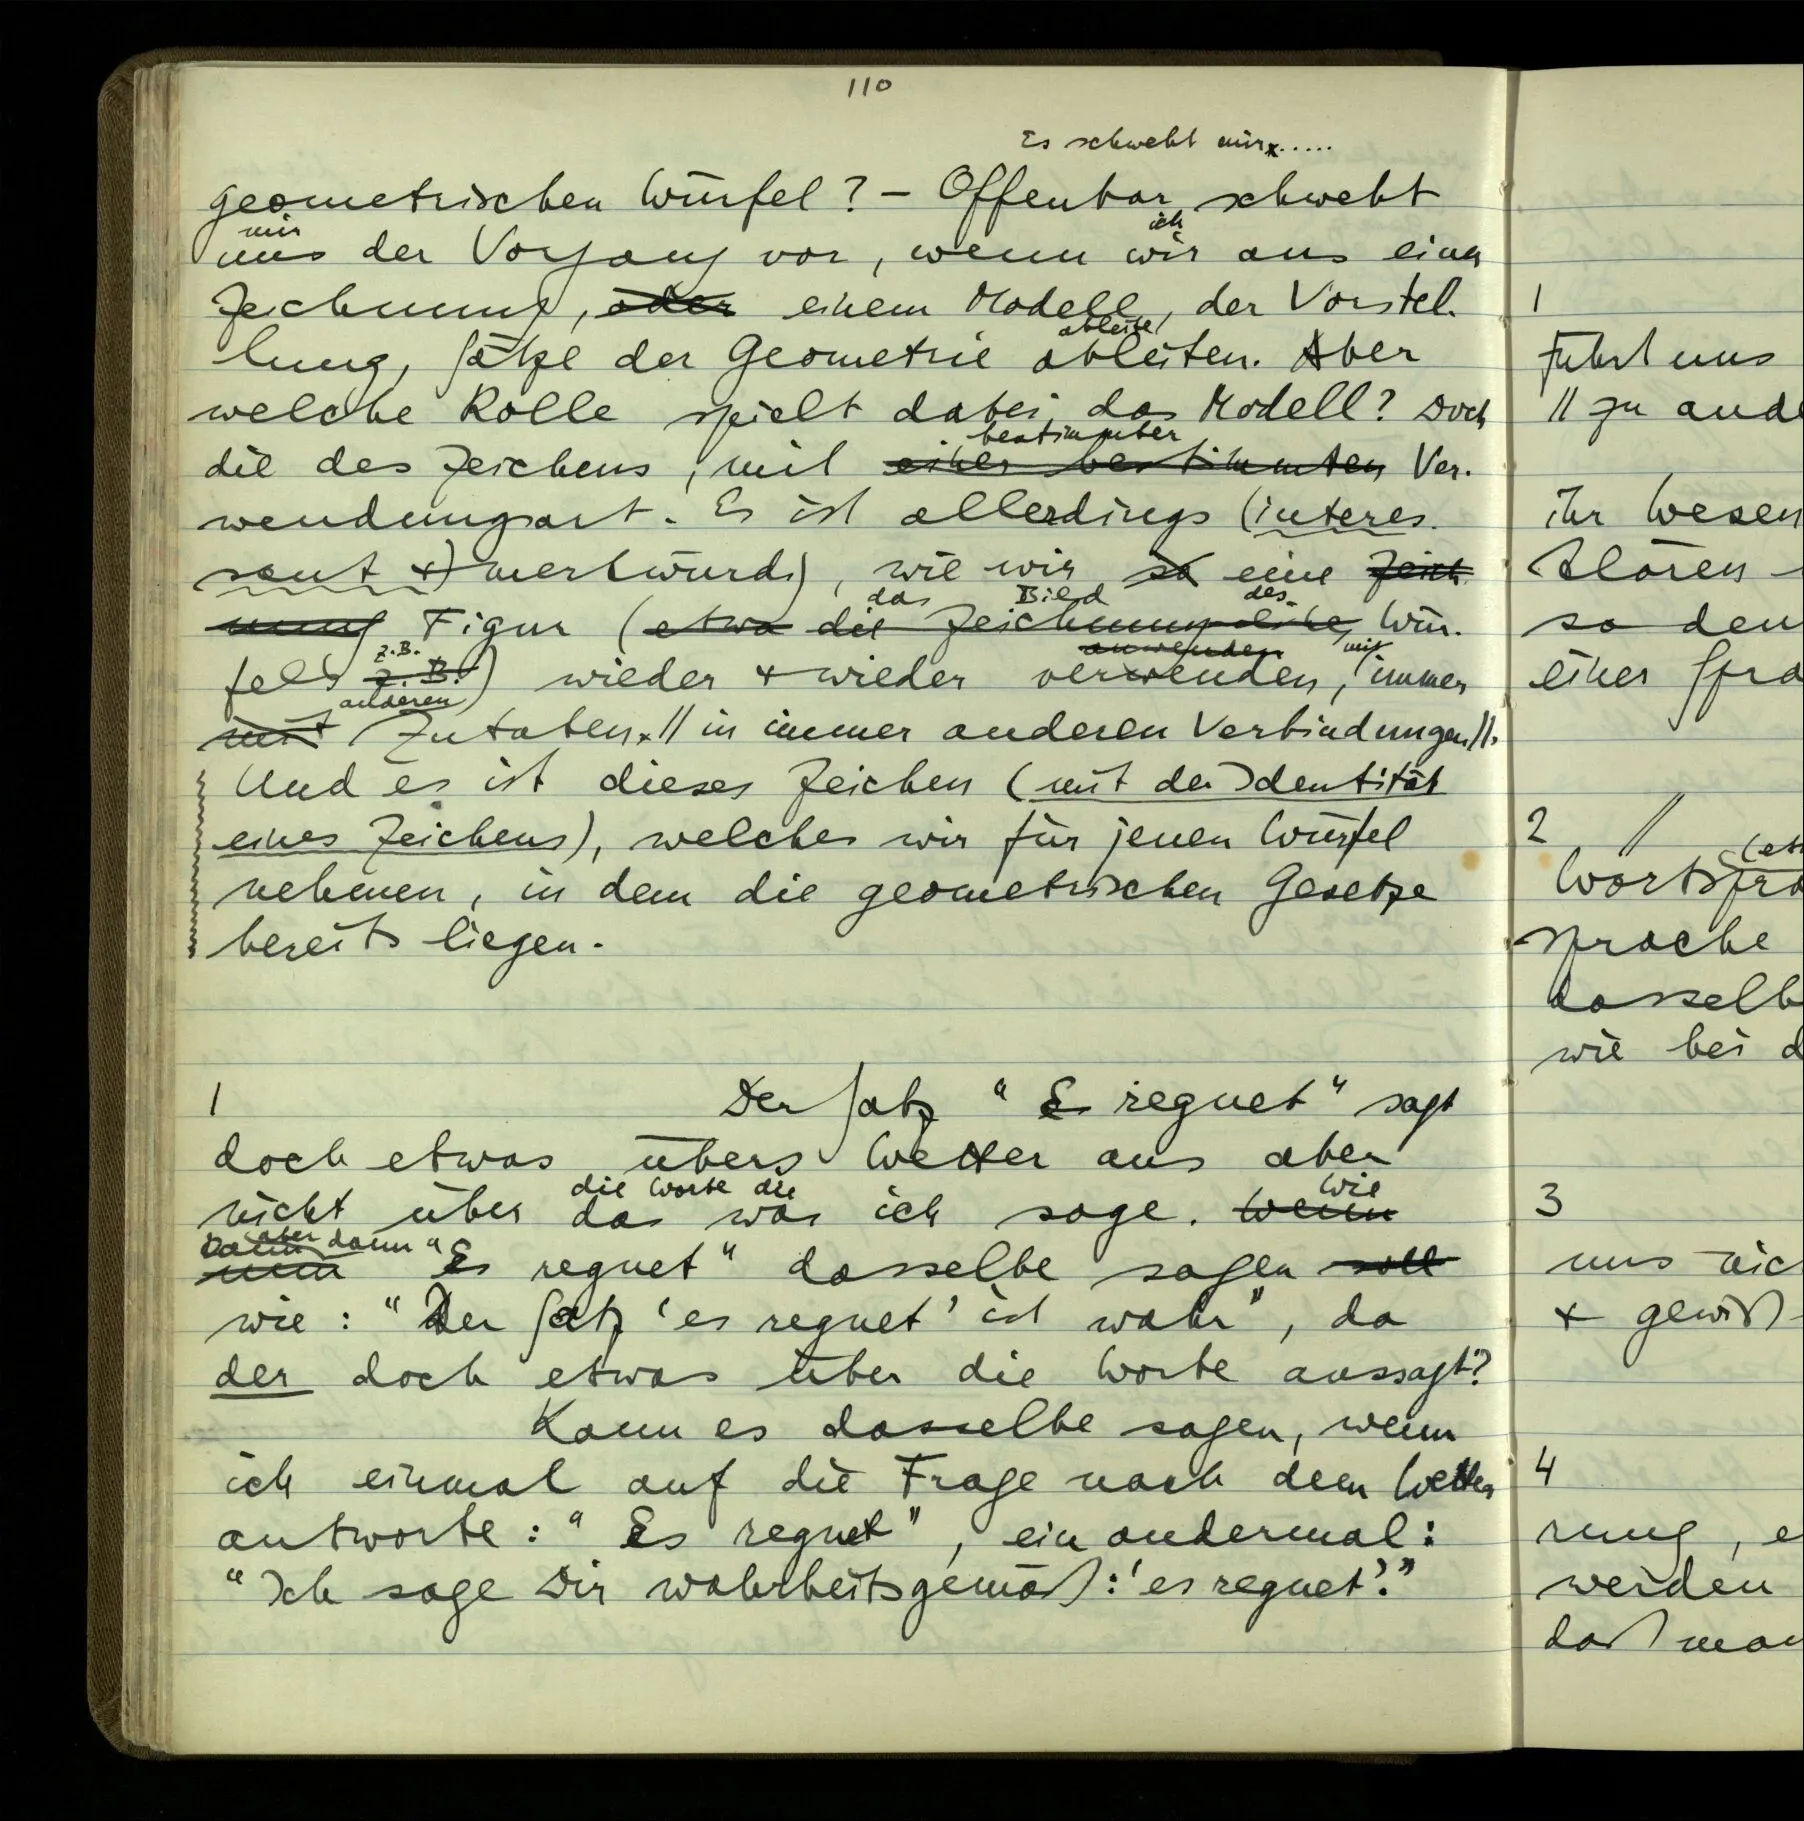 110
Es schwebt mir.....
geometrischen Würfel? – Offenbar schwebt
mir ich
uns der Vorgang vor, wenn wir aus einer
Zeichnung, oder einem Modell, der Vorstel-
ableite
lung, Sätze der Geometrie ableiten. Aber
welche Rolle spielt dabei das Modell? Doch
bestimmter
die des Zeichens, mit einer bestimmten Ver-
wendungsart. Es ist allerdings (interes-
sant +) merkwürdig, wie wir so eine Zeich-
das Bild des
nung Figur (etwa die Zeichnung eines Wür-
z.B. anwenden mit
fels z.B.) wieder + wieder verwenden, immer
anderen
mit Zutaten. // in immer anderen Verbindungen //.
Und es ist dieses Zeichen (mit der Identität
eines Zeichens), welches wir für jenen Würfel
nehmen, in dem die geometrischen Gesetze
bereits liegen.
1 Der Satz "Es regnet" sagt
doch etwas übers Wetter aus aber
die Worte die Wie
nicht über das was ich sage. Wenn
aber dann
nun "Es regnet" dasselbe sagen soll
wie: "Der Satz 'es regnet' ist wahr", da
der doch etwas über die Worte aussagt?
Kann es dasselbe sagen, wenn
ich einmal auf die Frage nach dem Wetter
antworte: "Es regnet", ein andermal:
"Ich sage Dir wahrheitsgemäß: 'es regnet'."
1
führt uns
// zu ande
ihr Wesen
klären -
so den
einer Spra
2 //
Wortspra
Sprache
dasselb
wie bei d
3
uns nic
+ gewiß
4
rung, e
werden
daß man